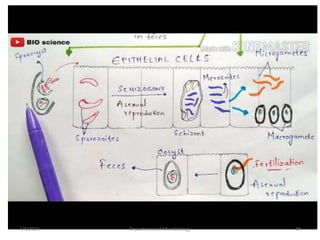 in feces
BIO science
Made with KINEMASTER
Sporocyst
EPITHELIAL CELLS
Microgametes
SCHIZOGONY
Merozoites
Asexual
reproduction
Sporozoites
Schizont
Macrogamete
Oocyst
Feces
Fertilization
Asexual
reproduction